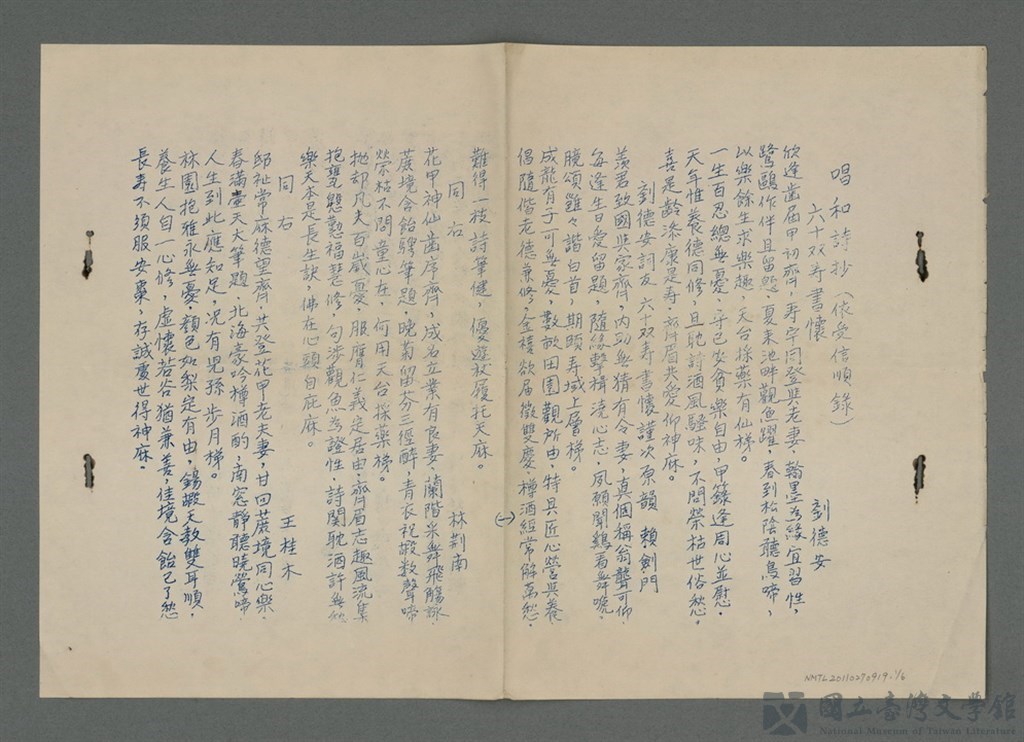 唱和詩抄（依受信順錄）
六十双寿書懷 劉德安
欣逢齒屆甲初齊，寿宇同登與老妻，翰墨為緣宜習性，
鷺鷗作伴且留題，夏來池畔觀魚躍，春到松陰聽鳥啼，
以樂餘生求樂趣，天台採藥有仙梯。
一生百忍總無憂，守己安貧樂自由，甲籙逢周心並慰，
天年惟養德同修，且耽詩酒風騷味，不問榮枯世俗愁。
喜是齡添康是寿，齊眉共愛仰神庥。
劉德安詞友六十双寿書懷謹次原韻 賴劍門
羨君致國與家齊，內助無猜有令妻，真個稱翁聲可仰，
每逢生日受留題，隨緣擊楫澆心志，夙願聞鷄看舞，
腆頌雖々諧白首，期頤寿域上層梯。
成龍有子可無憂，數畝田園觀所由，特具匠心營與養，
倡隨偕老德兼修，金禧欲屆徵雙慶，樽酒經常解萬愁，
(一)
難得一枝詩筆健，優遊杖履托天庥。
同右 林荆南
花甲神仙齒序齊，成名立業有良妻，蘭階采舞飛觴詠，
蔗境含飴騁筆題，晚菊留芬三徑醉，青衣祝嘏数聲啼，
榮枯不問童心在，何用天台採藥梯。
抛却凡夫百歲憂，服膺仁義定居由，齊眉志趣風流集，
抱甕慇懃福慧修，句涉觀魚為證性，詩関耽酒許無愁
樂天本是長生訣，佛在心頭自庇庥。
同右 王桂木
邱祉常庥德里齊，共登花甲老夫妻，甘回蔗境同心樂，
春滿壷天大筆題，北海豪吟樽酒酌，南窓静聽曉鶯啼，
人生到此應知足，况有児孫步月梯。
林園抱雅永無憂，顏色如梨定有由，錫嘏天教雙耳順，
養生人自一心修，虛懷若谷猶兼善，佳境含飴已了愁
長寿不須服安棗，存誠慶世得神庥。
NMTL20110270919-1/6
國立臺灣文學館
National Museum of Taiwan Literature